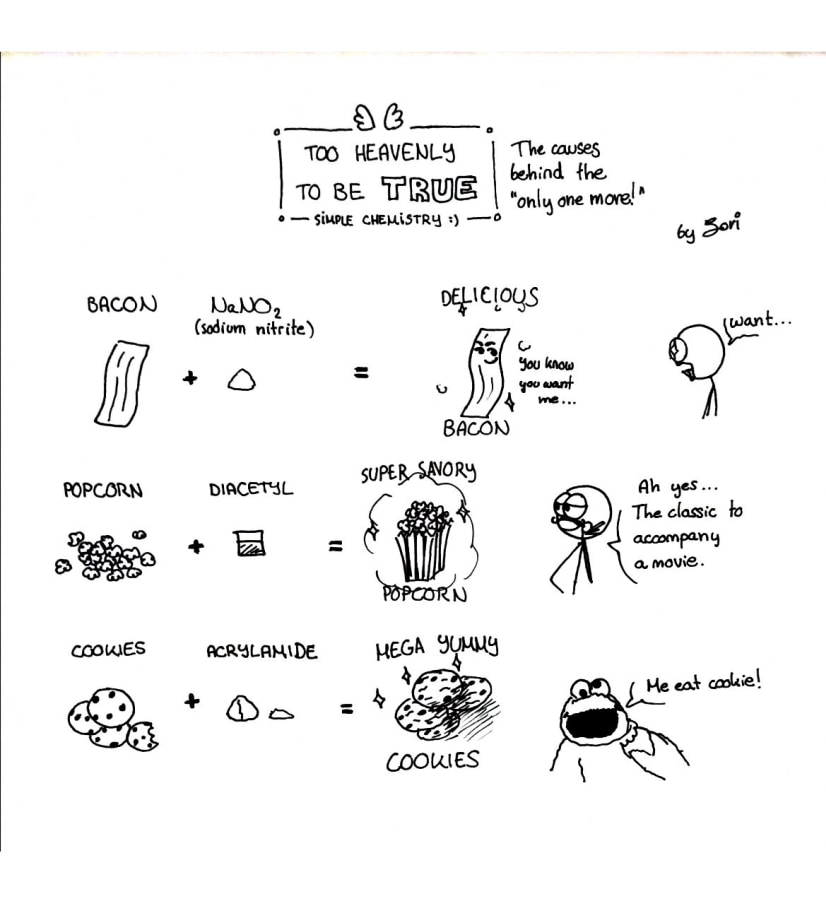 TOO HEAVENLY
TO BE TRUE
SIMPLE CHEMISTRY :)
The causes
behind the
"only one more!"
by Zori
BACON
NaNO₂
(sodium nitrite)
+
=
DELICIOUS
you know
you want
me...
BACON
want...
POPCORN
DIACETYL
+
=
SUPER SAVORY
POPCORN
Ah yes...
The classic to
accompany
a movie.
COOKIES
ACRYLAMIDE
+
=
MEGA YUMMY
COOKIES
Me eat cookie!